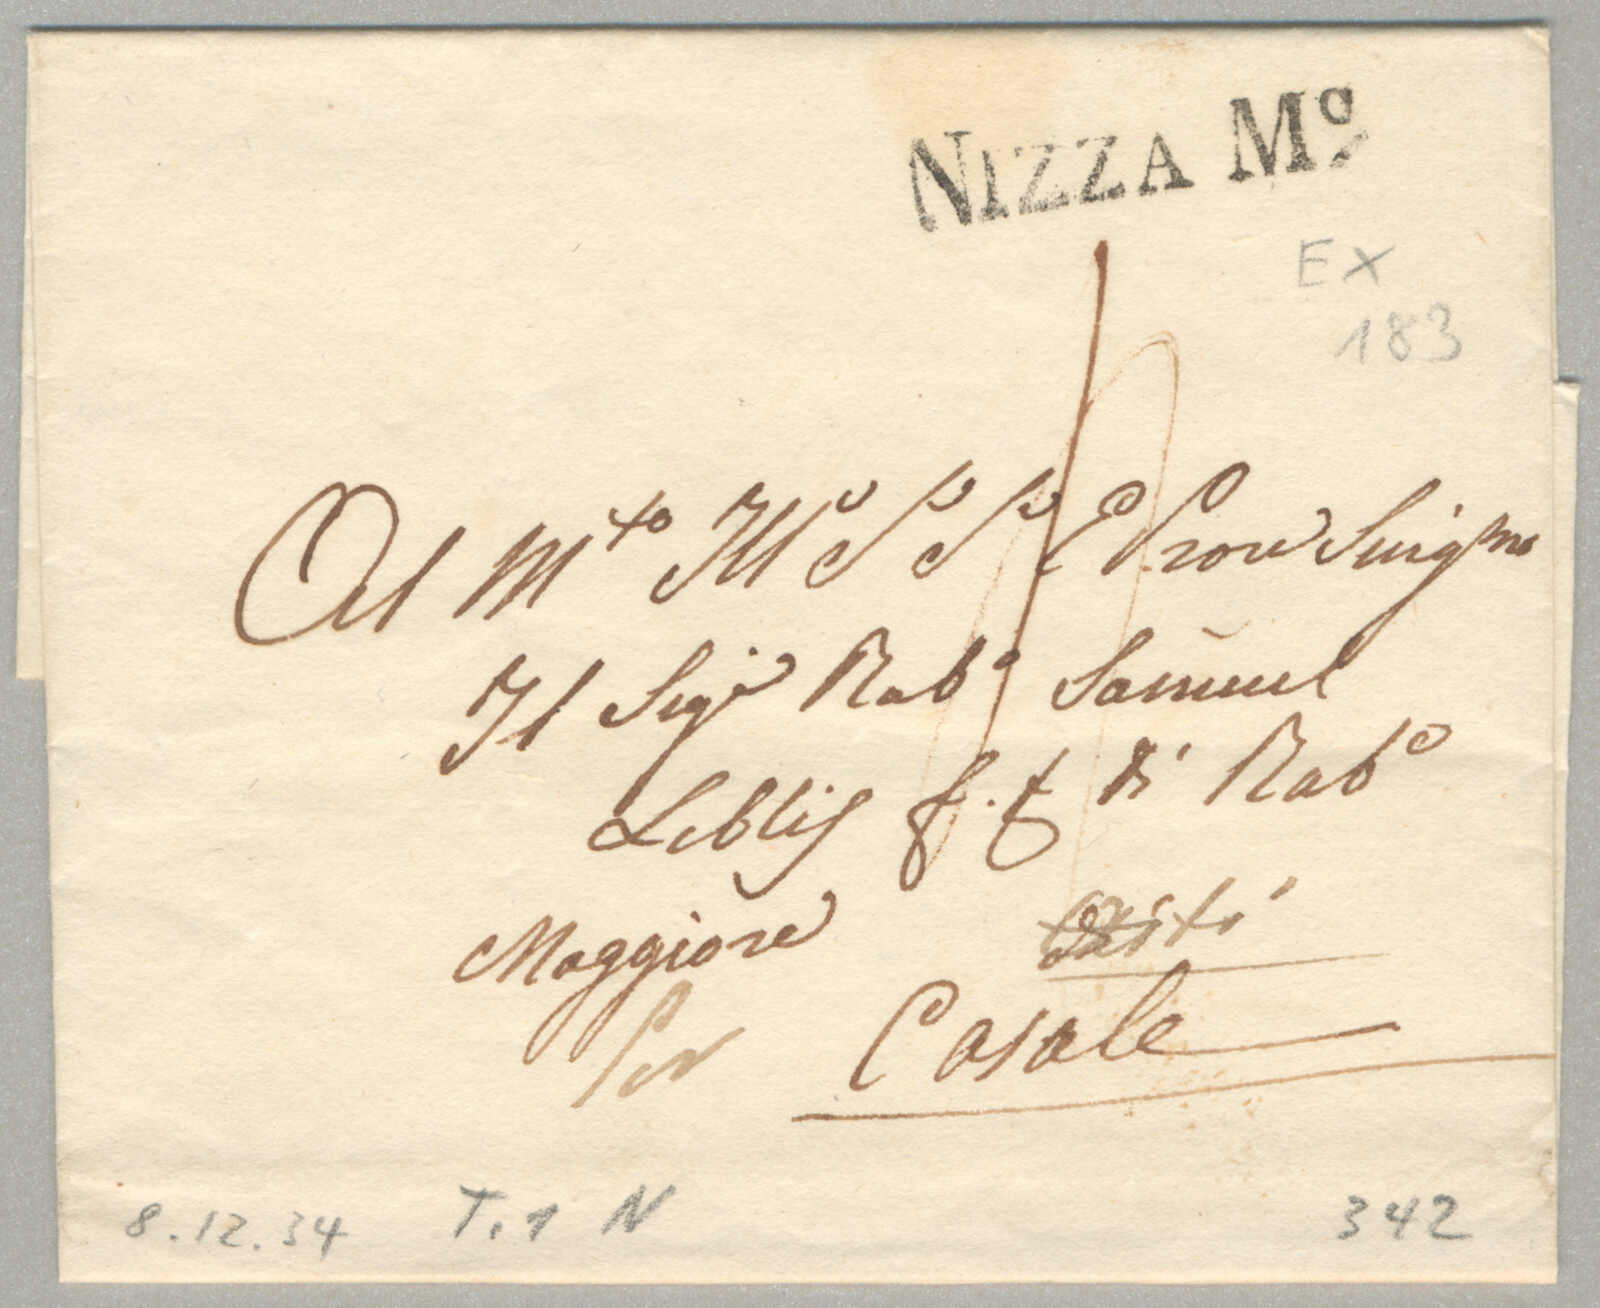 NIZZA Mº
EX
183
Al M.to Ill.e S S E Prone
Il Sigr Rabº Samuel
Leblis f.f di Rabº
Maggiore
Per Casale
8.12.34 T.1 N 342